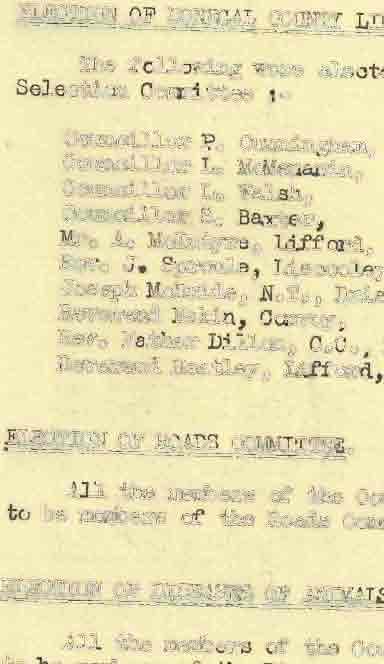 ELECTION OF DONEGAL COUNTY LI
The following were elect
Selection Committee :-
Councillor P. Cunningham,
Councillor L. McMenamin,
Councillor L. Walsh,
Councillor S. Baxter,
Mr. A. McIntyre, Lifford,
Rev. J. Sproule, Liscooley
Joseph McBride, N.T.,
Reverend
Rev. Father Dillon, C.C.,
Reverend Hartley, Lifford,
ELECTION OF ROADS COMMITTEE.
All the members of the Cou
to be members of the Roads Comm
ELECTION OF DISEASES OF ANIMALS
All the members of the Cou
to be